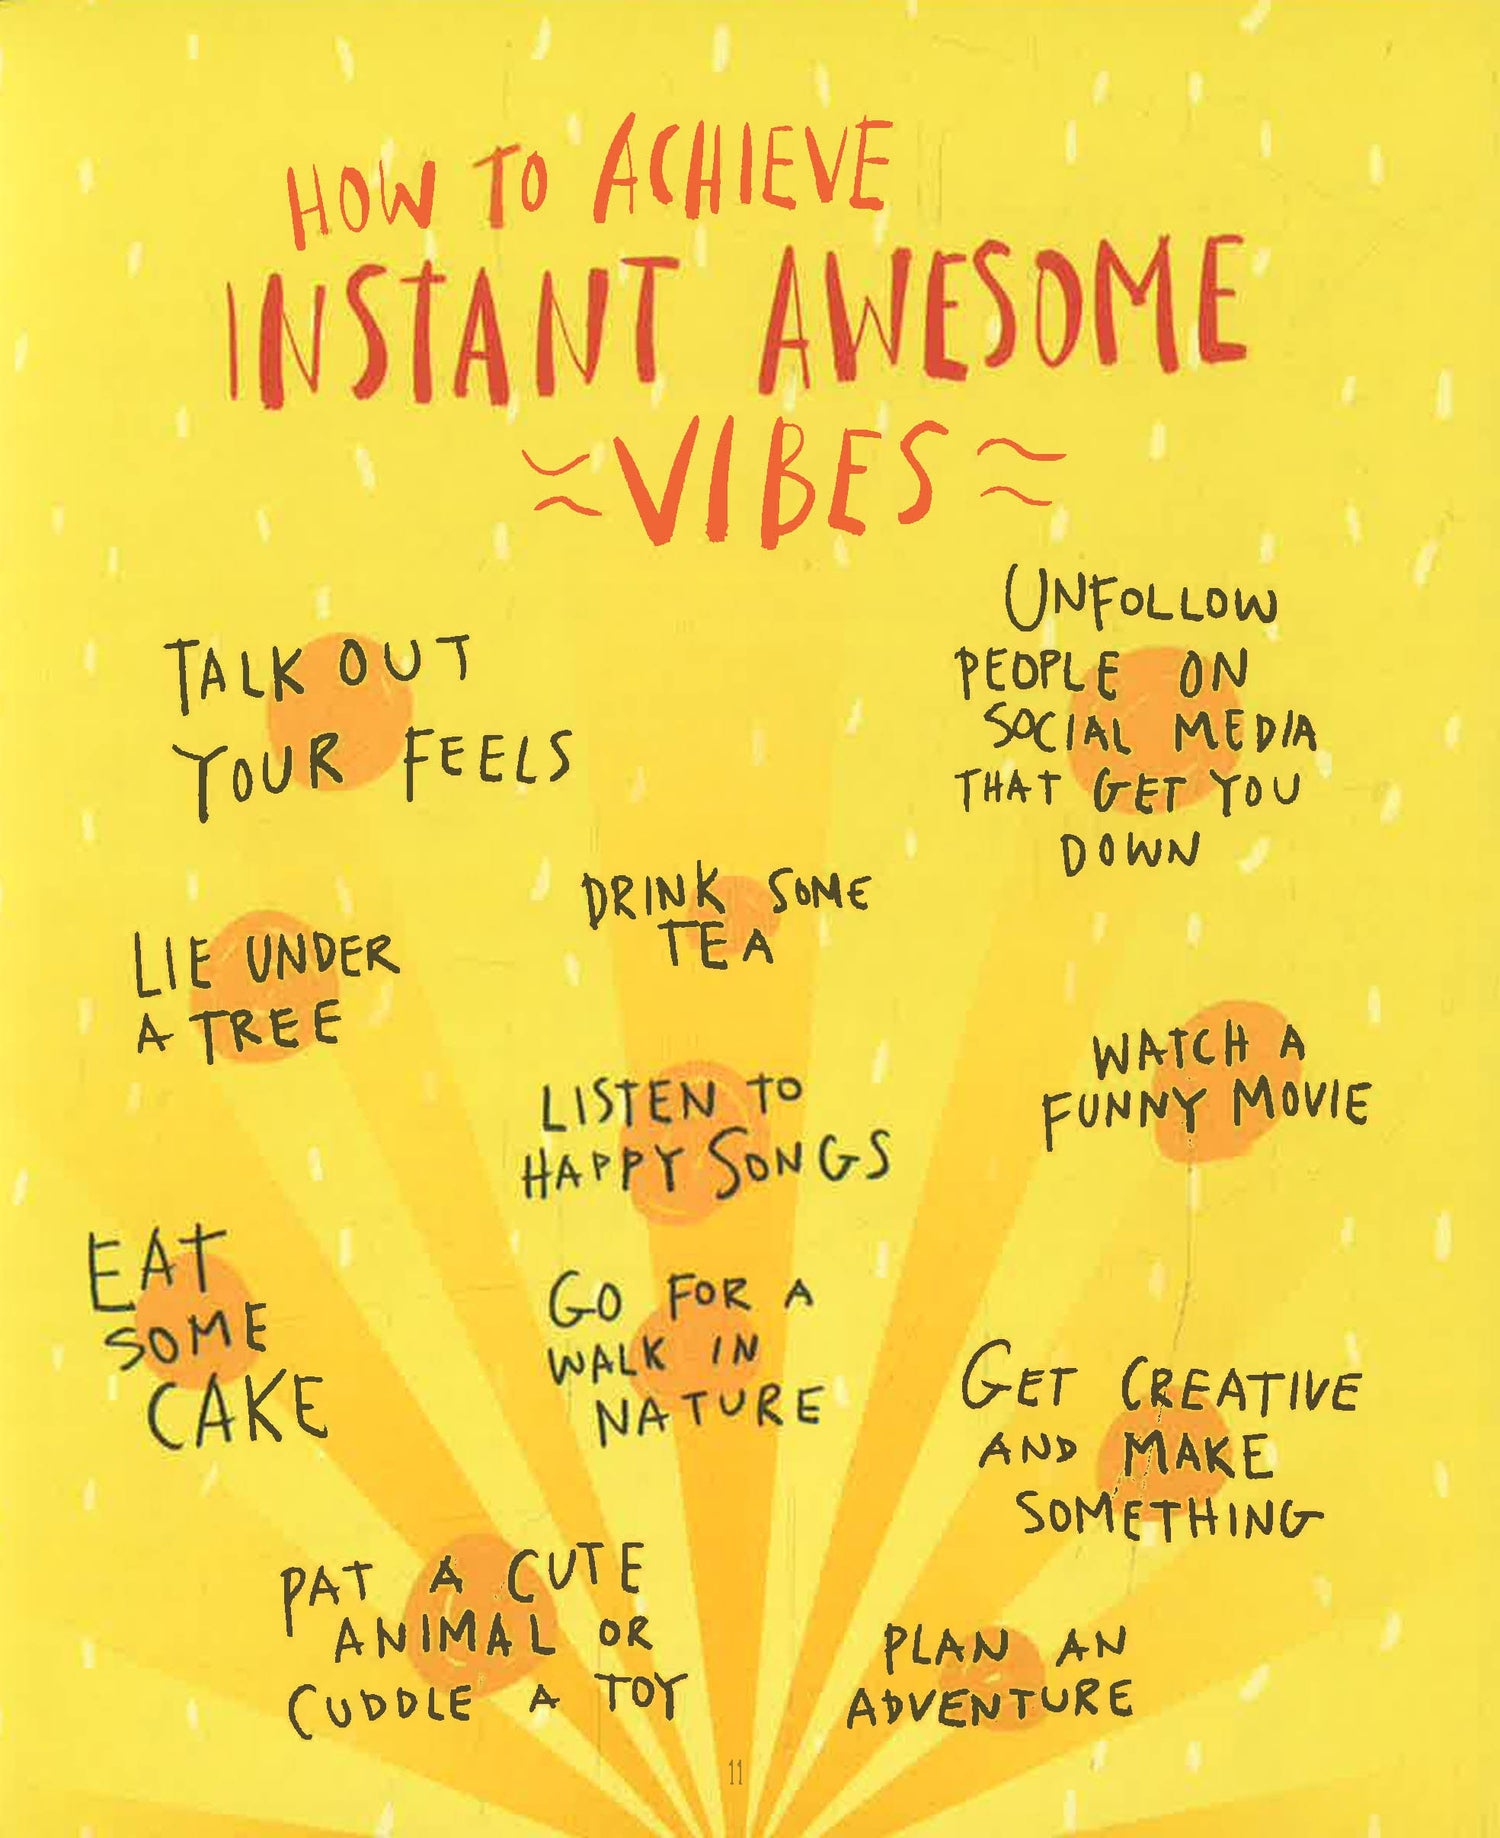 HOW TO ACHIEVE
INSTANT AWESOME
VIBES
TALK OUT
YOUR FEELS
UNFOLLOW
PEOPLE ON
SOCIAL MEDIA
THAT GET YOU
DOWN
DRINK SOME
TEA
LIE UNDER
A TREE
WATCH A
FUNNY MOVIE
LISTEN TO
HAPPY SONGS
EAT
SOME
CAKE
GO FOR A
WALK IN
NATURE
GET CREATIVE
AND MAKE
SOMETHING
PAT A CUTE
ANIMAL OR
CUDDLE A TOY
PLAN AN
ADVENTURE
11